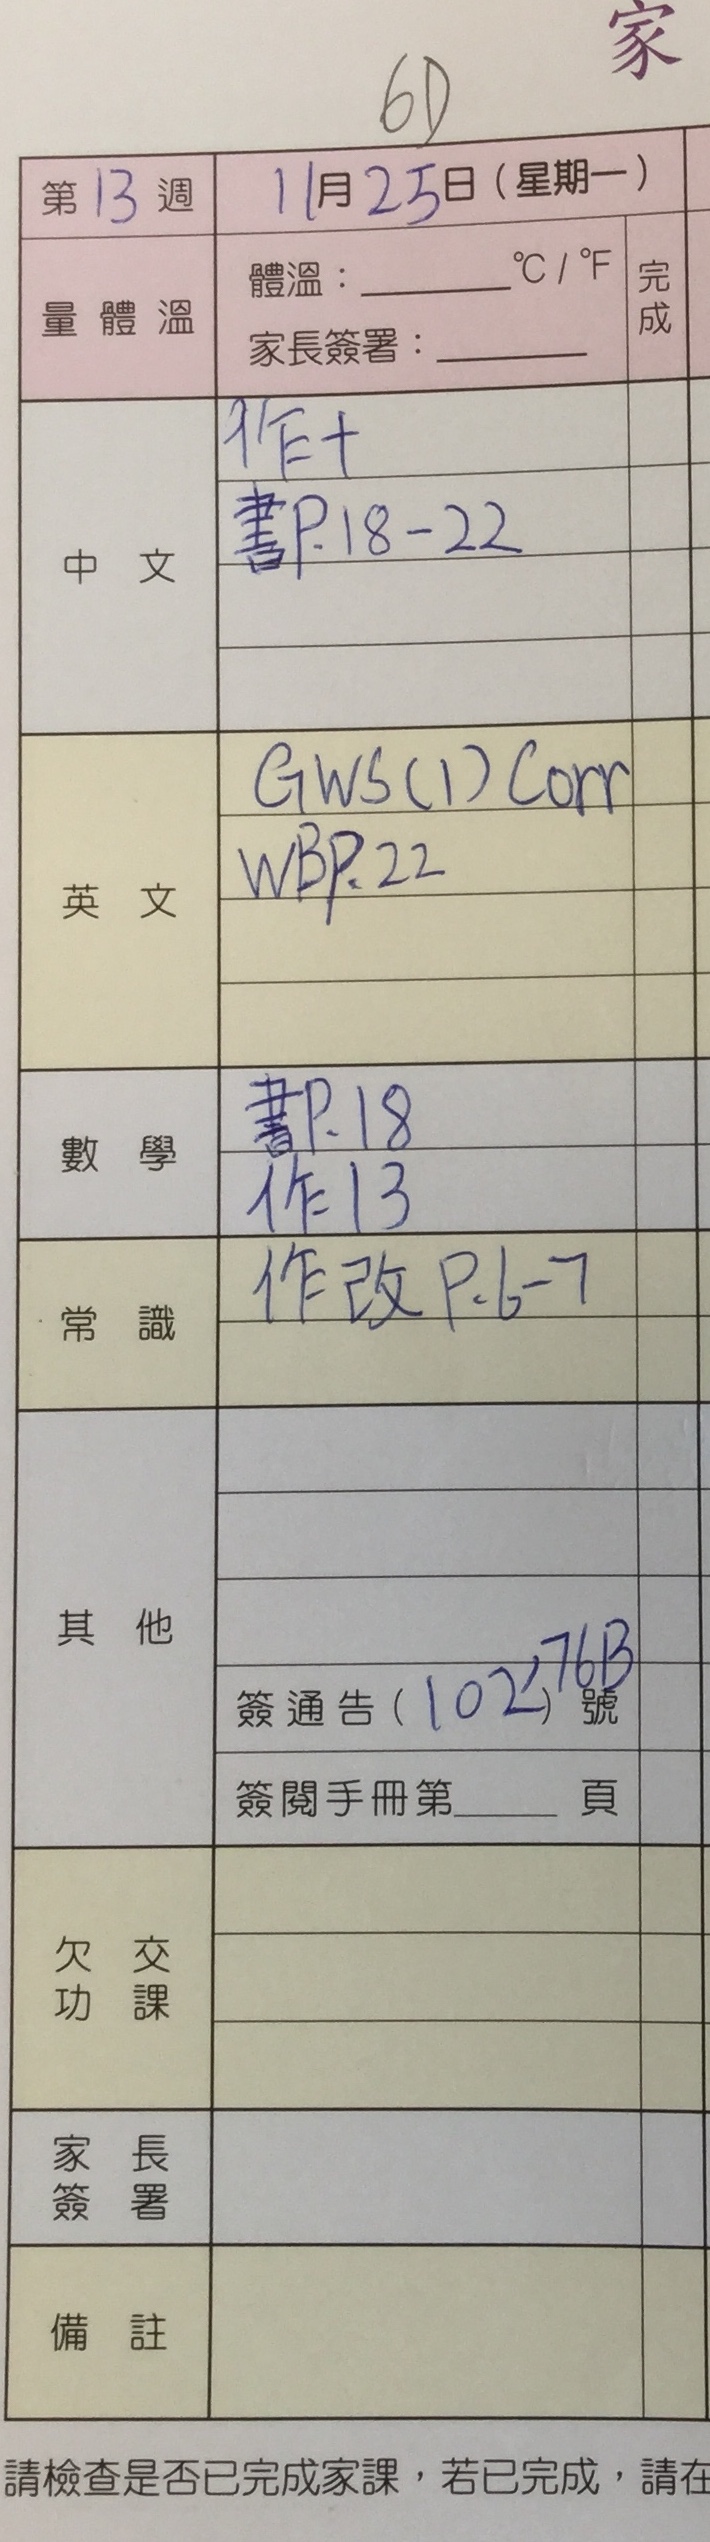 家
6D
第13週 11月25日(星期一)
量體溫 體溫:______°C/°F 完成
家長簽署:______
中文 作十
書P.18-22
英文 GWS(1)Corr
WBP.22
數學 書P.18
作13
常識 作改P.6-7
其他
簽通告(102,)號 76B
簽閱手冊第____頁
欠交
功課
家長
簽署
備註
請檢查是否已完成家課,若已完成,請在